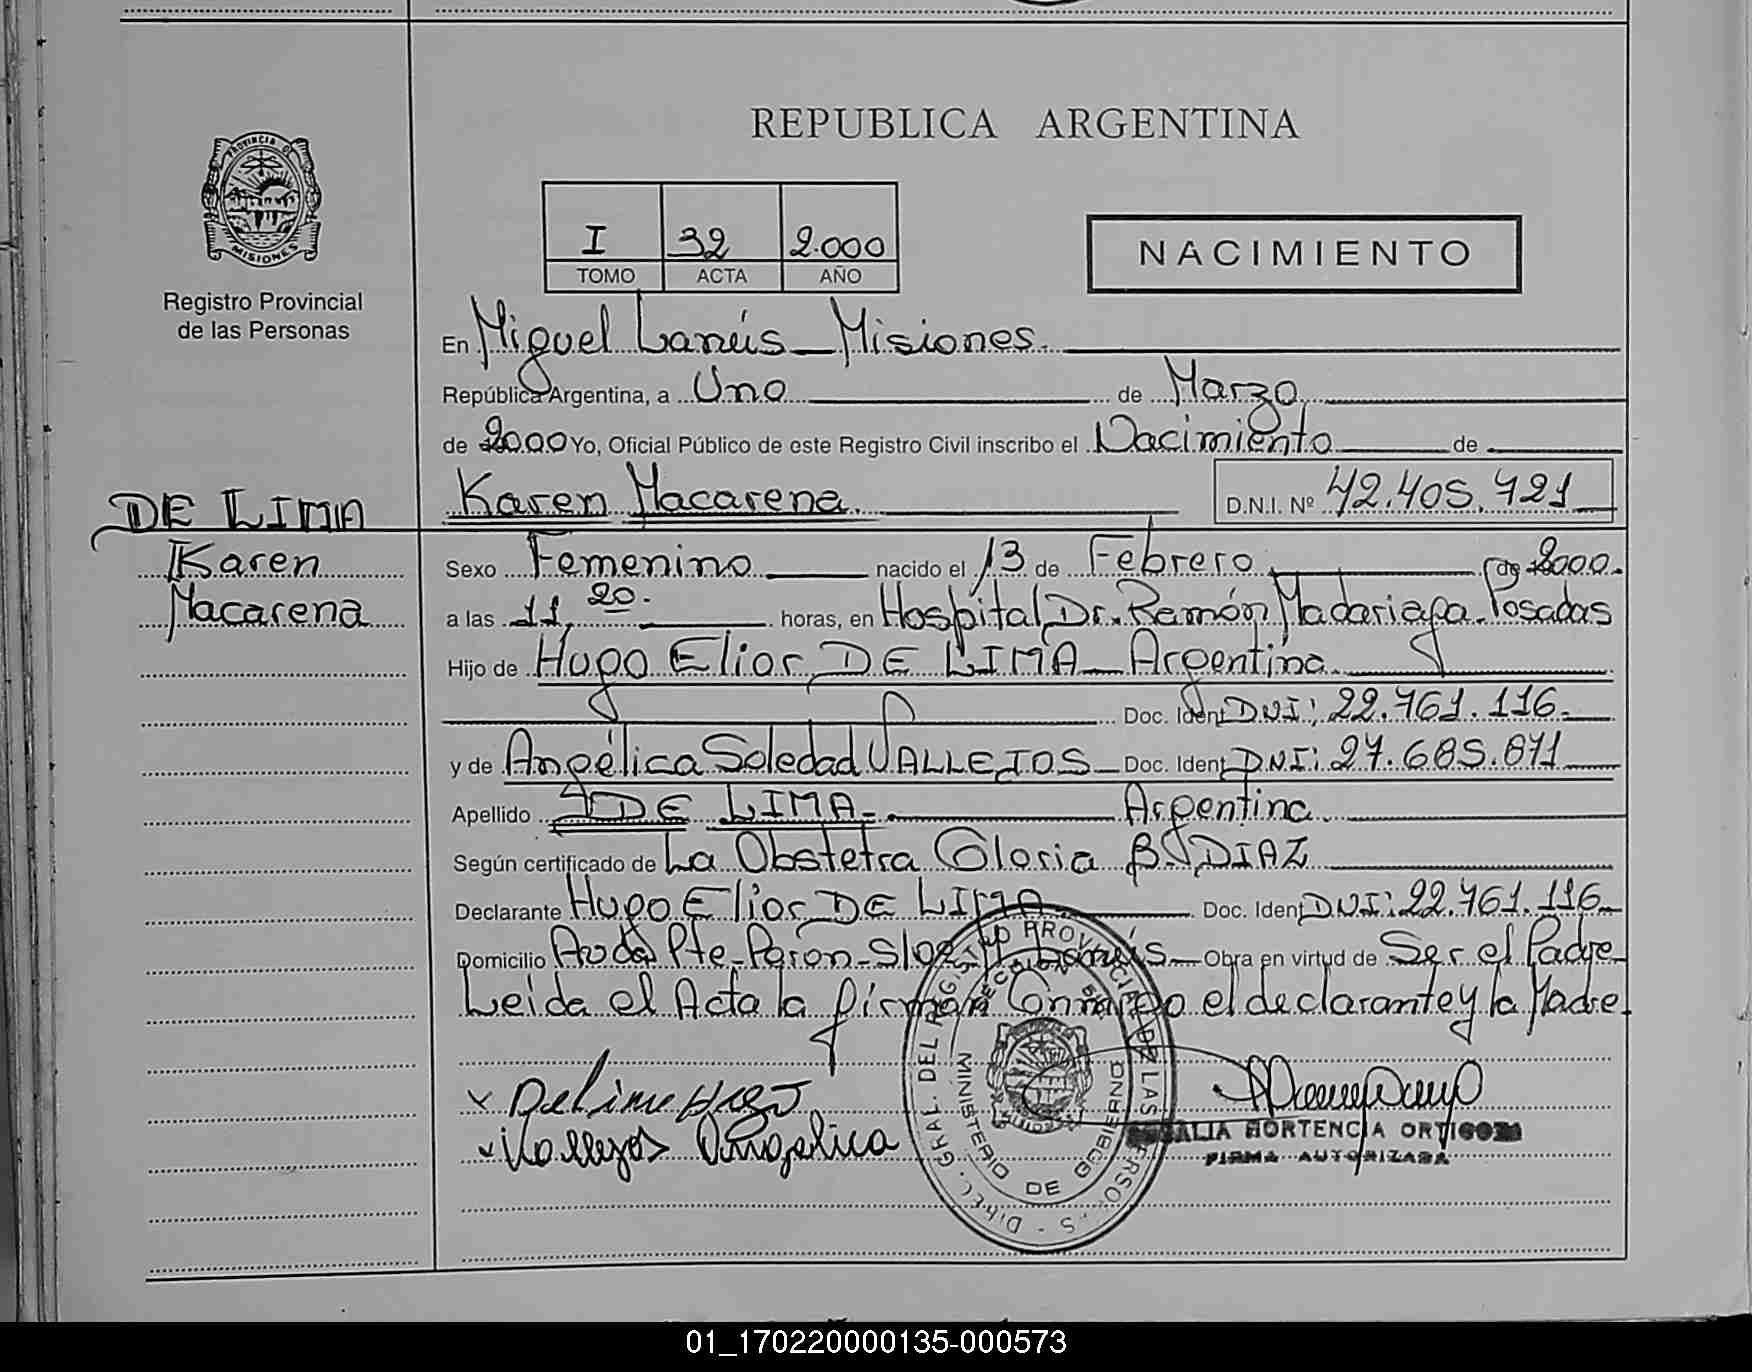 REPUBLICA ARGENTINA
PROVINCIA DE
MISIONES
Registro Provincial
de las Personas
I 32 2.000
TOMO ACTA AÑO
NACIMIENTO
En Miguel Lanús - Misiones.
República Argentina, a Uno de Marzo
de 2000 Yo, Oficial Público de este Registro Civil inscribo el Nacimiento de
Karen Macarena D.N.I. Nº 42.405.721
DE LIMA
Karen
Macarena
Sexo Femenino nacido el 13 de Febrero de 2000.
a las 11, 20. horas, en Hospital Dr. Ramón Madariaga. Posadas
Hijo de Hugo Elior DE LIMA - Argentina
Doc. Ident DNI: 22.761.116.
y de Angélica Soledad VALLEJOS - Doc. Ident DNI: 27.685.871
Apellido DE LIMA - Argentina
Según certificado de La Obstetra Gloria B. DIAZ
Declarante Hugo Elior DE LIMA Doc. Ident DNI: 22.761.116
Domicilio Avda Pte-Perón-S/Nº Lanús - Obra en virtud de Ser el Padre
Leida el Acta la firman Conmigo el declarante y la Madre.
x Delima Hugo
x Vallejos Angelica
DIREC. GRAL. DEL REGISTRO PROVINCIAL DE LAS PERSONAS
MINISTERIO DE GOBIERNO
HORTENCIA
FIRMA AUTORIZADA
01_170220000135-000573